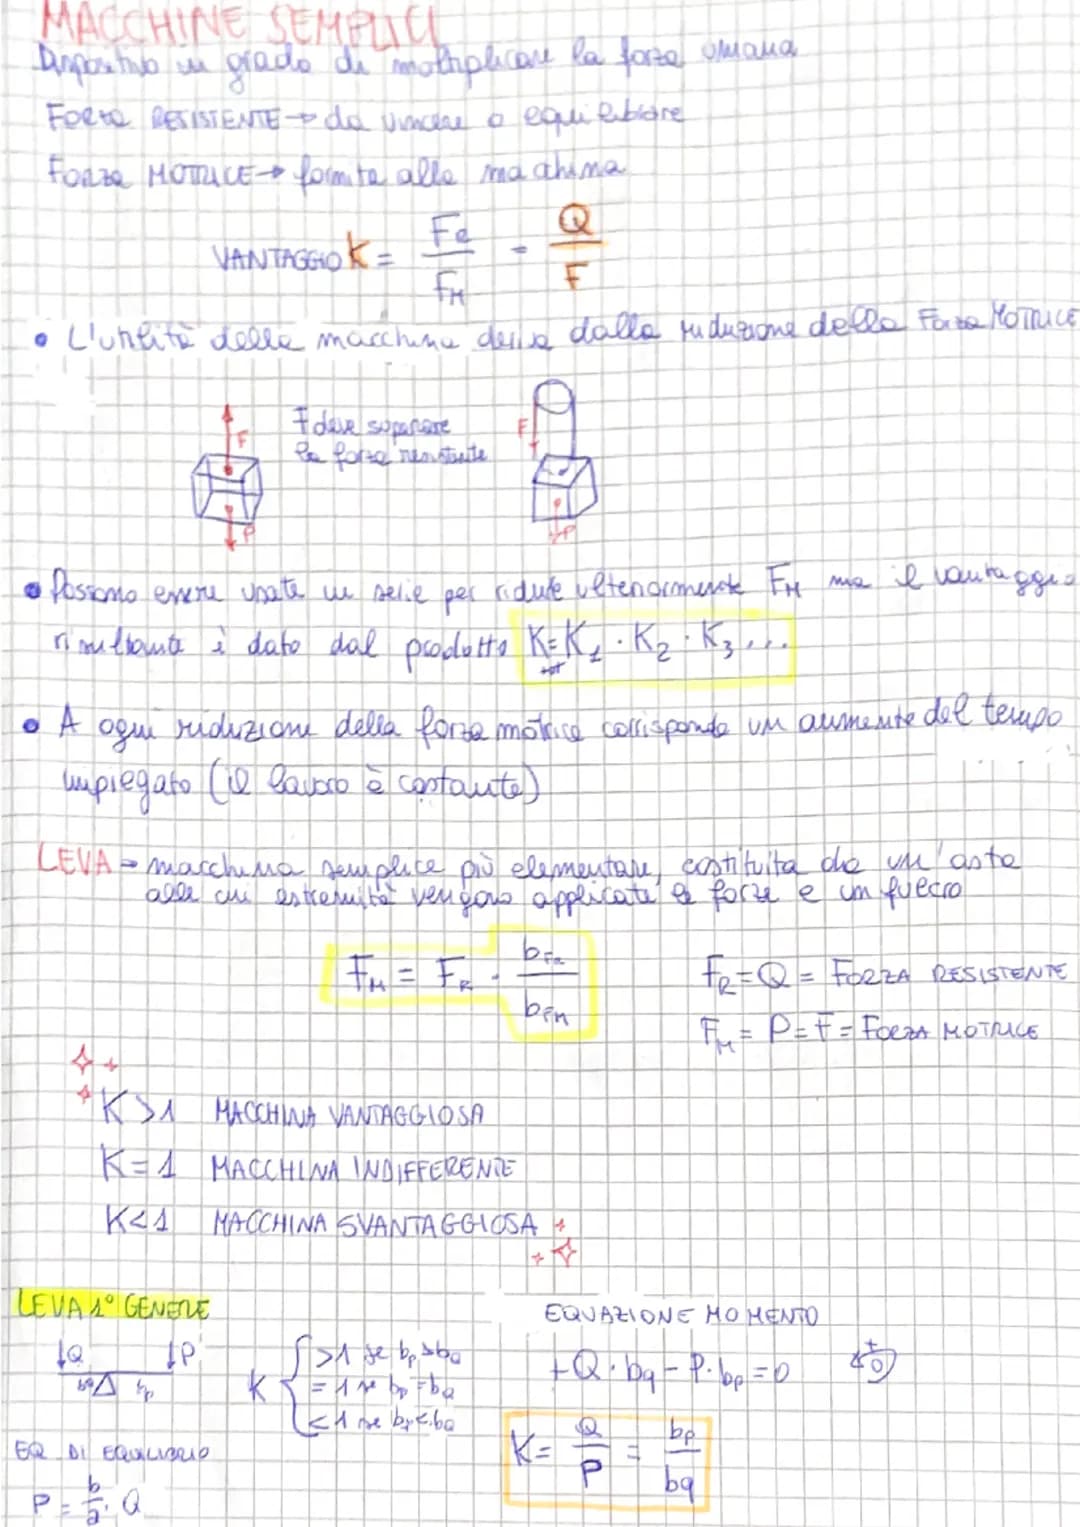 MACCHINE SEMPLICI
Dispositivo in grado di moltiplicare la forza umana
Forza RESISTENTE → da vincere o equilibrare
Forza MOTRICE → fornita alla macchina
VANTAGGIO K = FR / FM = Q / F
• L'utilità della macchina deriva dalla riduzione della Forza MOTRICE
F deve superare
la forza resistente
F
P
F
P
• Possono essere usate in serie per ridurre ulteriormente FM ma il vantaggio
risultante è dato dal prodotto Ktot = K1 · K2 · K3 ...
• A ogni riduzione della forza motrice corrisponde un aumento del tempo
impiegato (il lavoro è costante)
LEVA → macchina semplice più elementare, costituita da un'asta
alle cui estremità vengono applicate le forze e un fulcro
FM = FR · bFR / bFM
FR = Q = FORZA RESISTENTE
FM = P = F = FORZA MOTRICE
K>1 MACCHINA VANTAGGIOSA
K=1 MACCHINA INDIFFERENTE
K<1 MACCHINA SVANTAGGIOSA
LEVA 1° GENERE
EQUAZIONE MOMENTO
Q P
bq bp
K { >1 se bp>bq
=1 se bp=bq
<1 se bp<bq
+Q·bq − P·bp = 0
+
K = Q / P = bp / bq
EQ DI EQUILIBRIO
P = b / a · Q